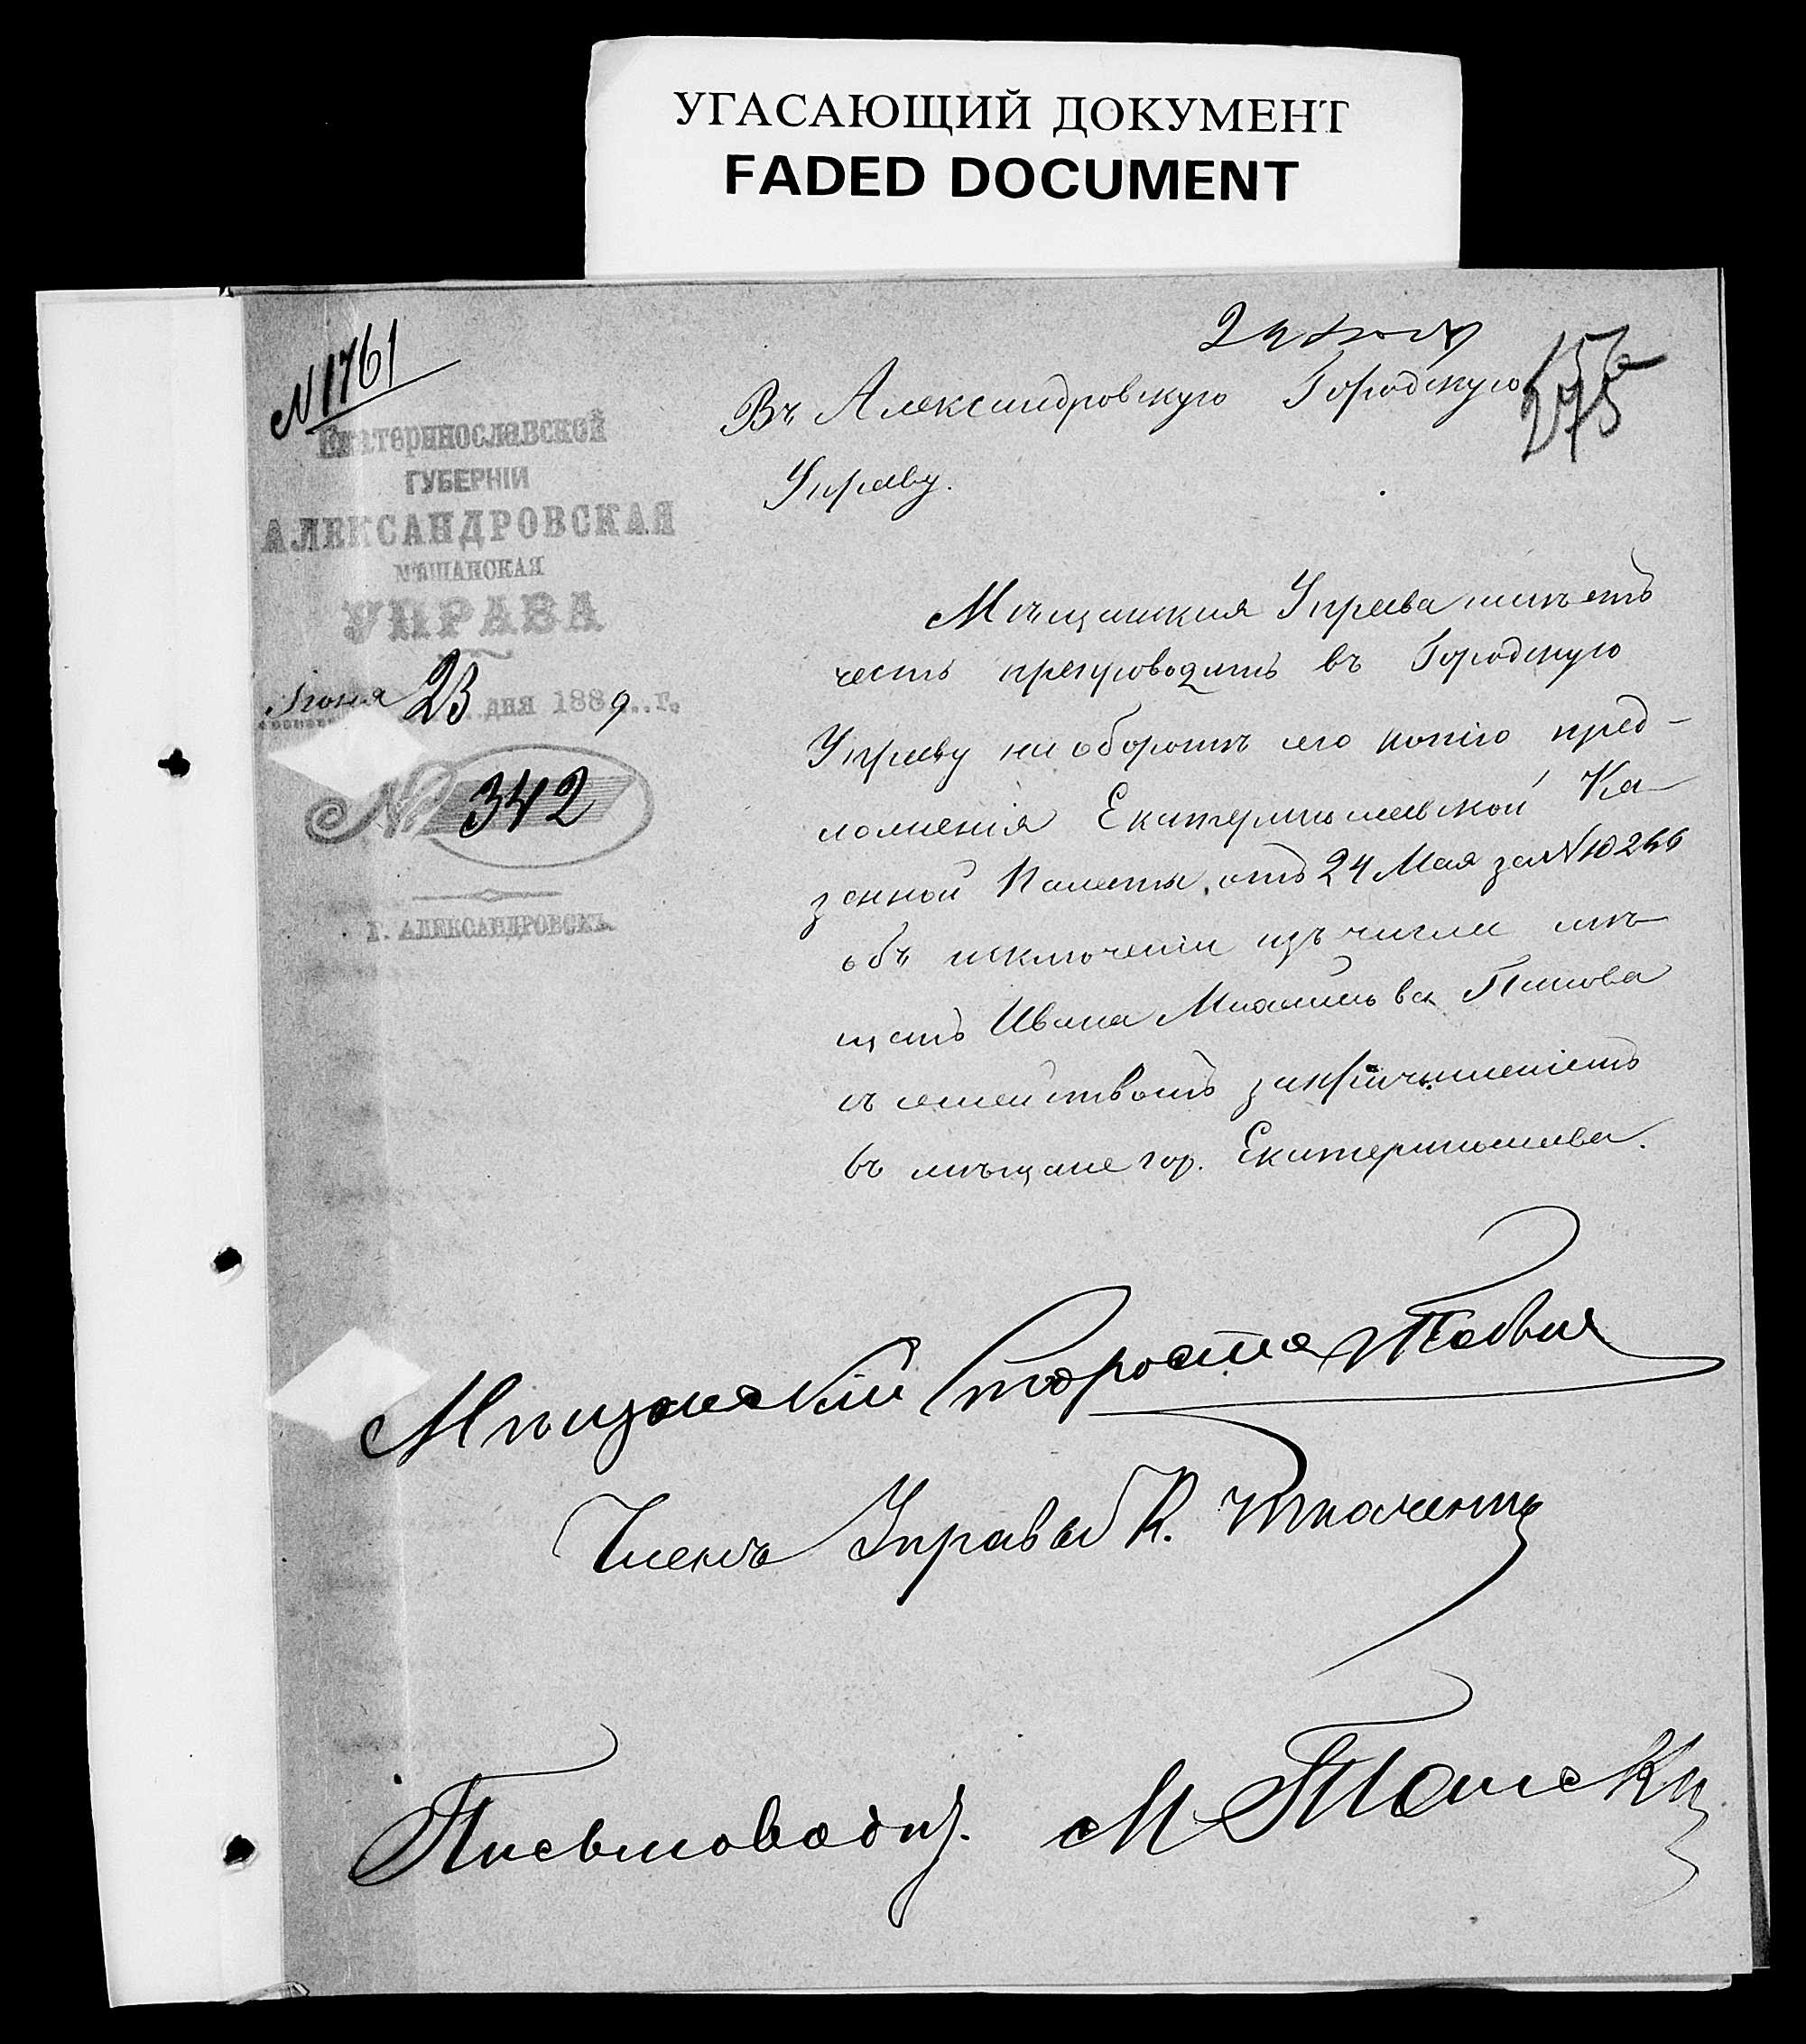 УГАСАЮЩИЙ ДОКУМЕНТ
FADED DOCUMENT
№ 1761
Екатеринославской
ГУБЕРНІИ
АЛЕКСАНДРОВСКАЯ
МѢЩАНСКАЯ
УПРАВА
Іюня 23 дня 1889 г.
№ 342
Г. АЛЕКСАНДРОВСКЪ
24
275
Въ Александровскую Городскую
Управу.
Мѣщанская Управа имѣетъ
честь препроводить въ Городскую
Управу на оборотѣ сего копію пред-
ложенія Екатеринославской Ка-
зенной Палаты, отъ 24 Мая за №
объ исключеніи изъ числа мѣ
щанъ Ивана Попова
съ семействомъ за
въ мѣщане гор. Екатеринослава.
Мѣщанскій Староста
Членъ Управы К. Ткаченко
Письмовод. М